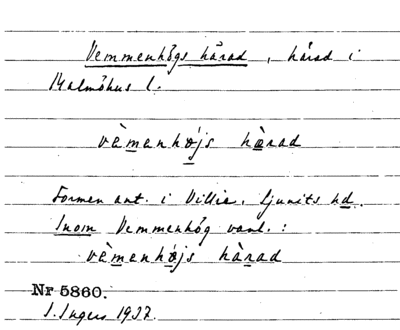 Vemmenhögs härad, härad i
Malmöhus l.
vèmenhøjs hèrad
Formen ant. i Villie, Ljunits hd.
Inom Vemmenhög vanl.:
vèmenhøjs hàrad
Nr 5860.
I. Ingers 1937.